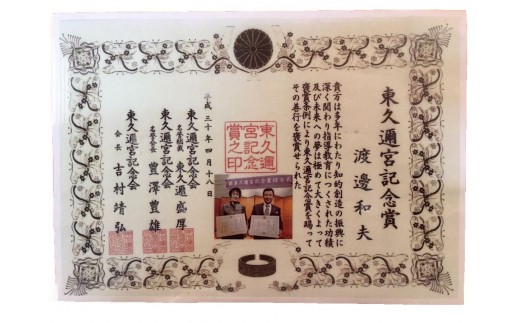 東久邇宮記念賞
渡邊和夫
貴方は多年にわたり知的創造の振興に
深く関わり指導教育につくされた功績
及び未来への夢は極めて大きくよって
褒賞条例により東久邇宮記念賞を賜って
その善行を褒賞せられた
平成三十年四月十八日
東久邇宮記念会
名誉総裁 東久邇盛厚
東久邇宮記念会
名誉会長 豊澤豊雄
東久邇宮記念会
会長 吉村靖弘
東久邇
宮記念
賞之印